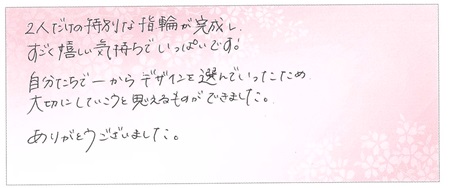 2人だけの特別な指輪が完成し、
すごく嬉しい気持ちでいっぱいです。
自分たちで一からデザインを選んでいったため
大切にしていこうと思えるものができました。
ありがとうございました。